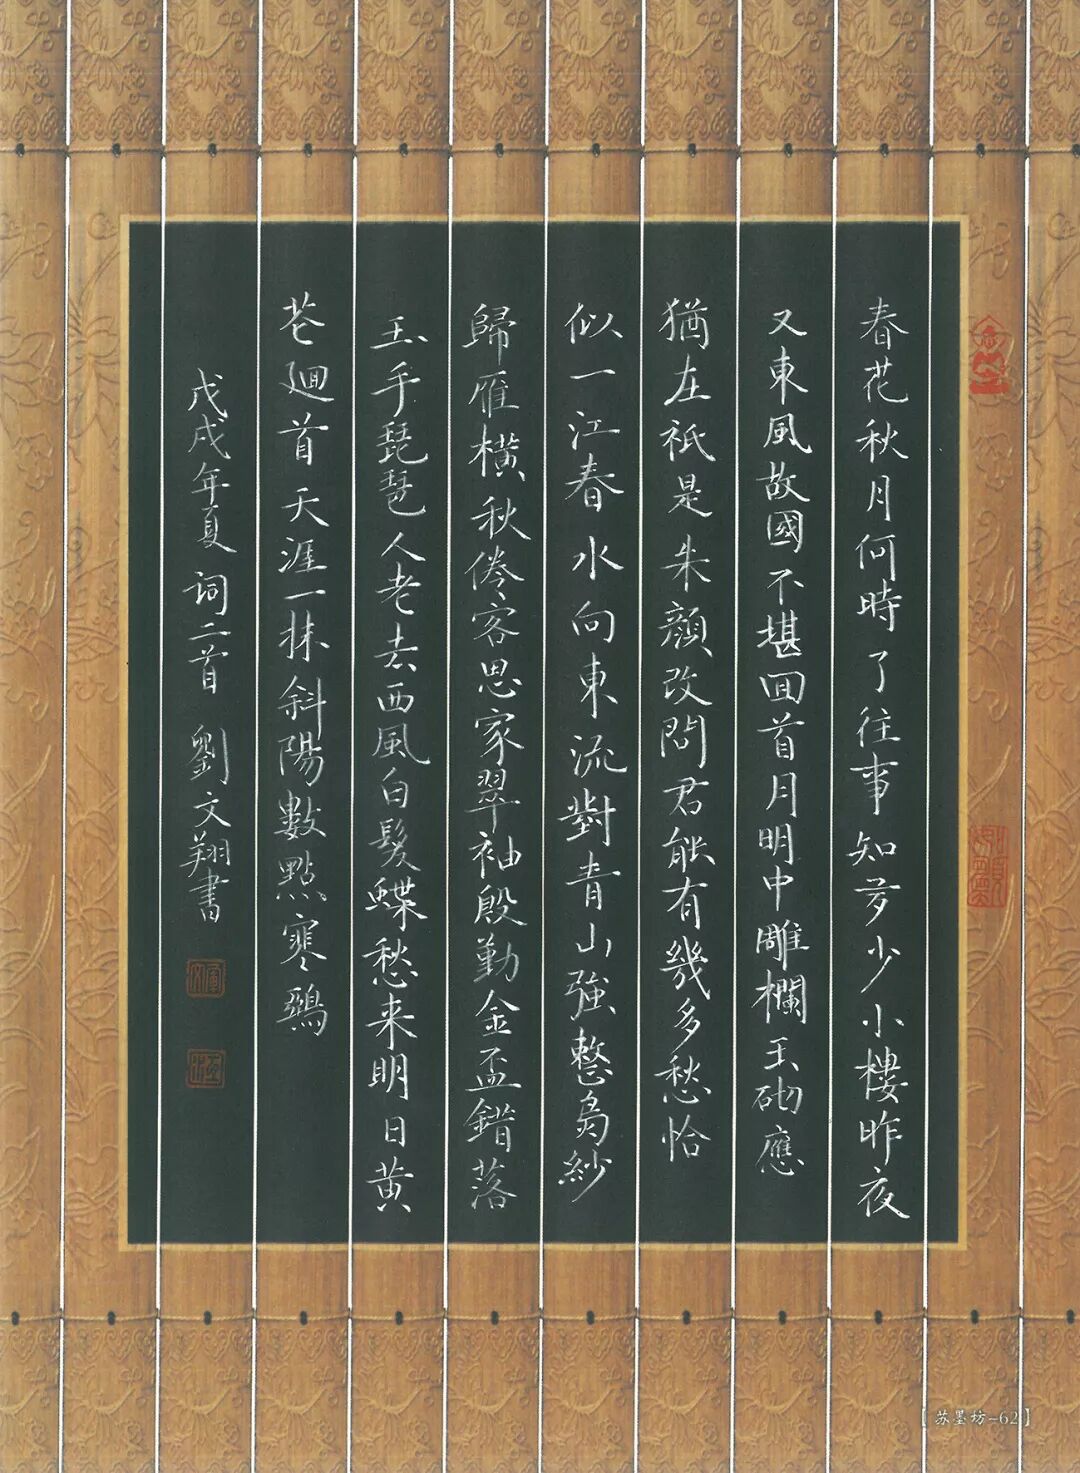 春花秋月何時了往事知多少小樓昨夜
又東風故國不堪回首月明中雕欄玉砌應
猶在祇是朱顏改問君能有幾多愁恰
似一江春水向東流對青山強整烏紗
歸雁橫秋倦客思家翠袖殷勤金盃錯落
玉手琵琶人老去西風白髮蝶愁来明日黄
花廻首天涯一抹斜陽數點寒鴉
戊戌年夏詞二首劉文翔書
【苏墨坊-62】